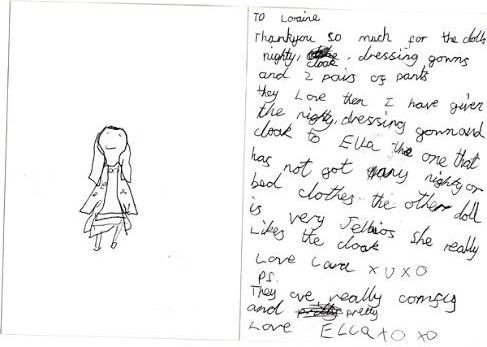 TO Loraine
Thankyou so much for the dolls
nighty, cloak, dressing gowns
and 2 pairs of pants
they Love then I have given
the nighty, dressing gown and
cloak to Ella the one that
has not got any nighty or
bed clothes. the other doll
is very Jellios she really
Likes the cloak
Love Cara X U X O
P.S.
They are really comfy
and pretty
Love ELLA XO XO